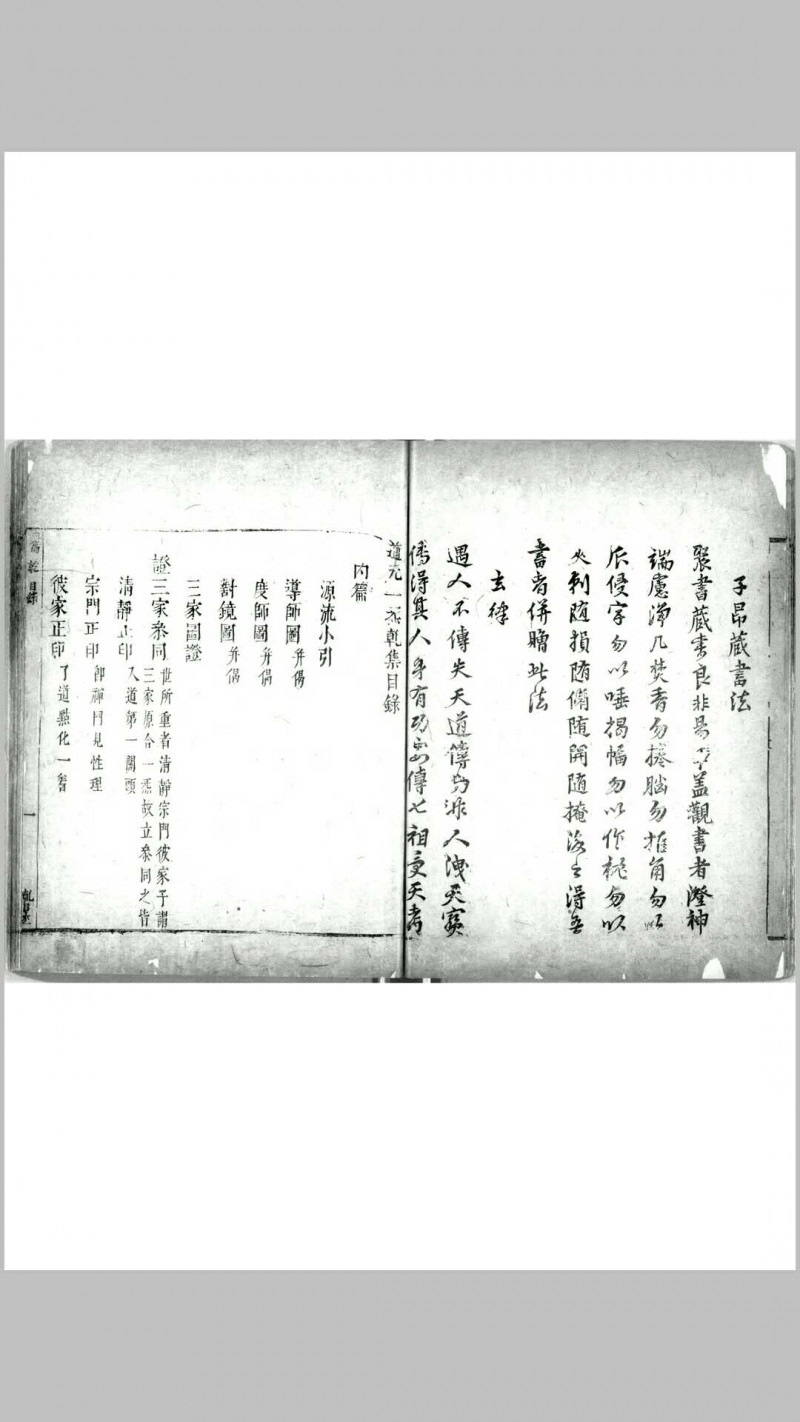 子昂藏書法
聚書藏書良非易事盖觀書者澄神
端慮淨几焚香勿捲腦勿折角勿以
爪侵字勿以唾揭幅勿以作枕勿以
夾刺随損随脩随開随掩後之得吾
書者併贈此法
玄律
遇人不傳失天道傳匆非人洩天寳
傳得其人身有功妄傳七祖受天考
道元一炁乾集目錄
内篇
源流小引
導師圖并偈
度師圖并偈
對鏡圖并偈
三家圖證
證三家叅同
世所重者清靜宗門彼家予謂
三家原合一炁故立叅同之旨
清靜正印 入道第一關頭
宗門正印 卽禪門見性理
彼家正印 了道點化一着
目錄
一